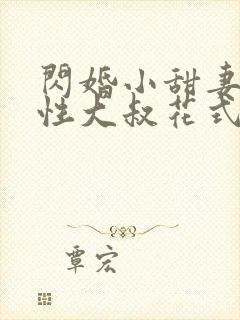 閃婚小甜妻
性大叔花式
覃宏